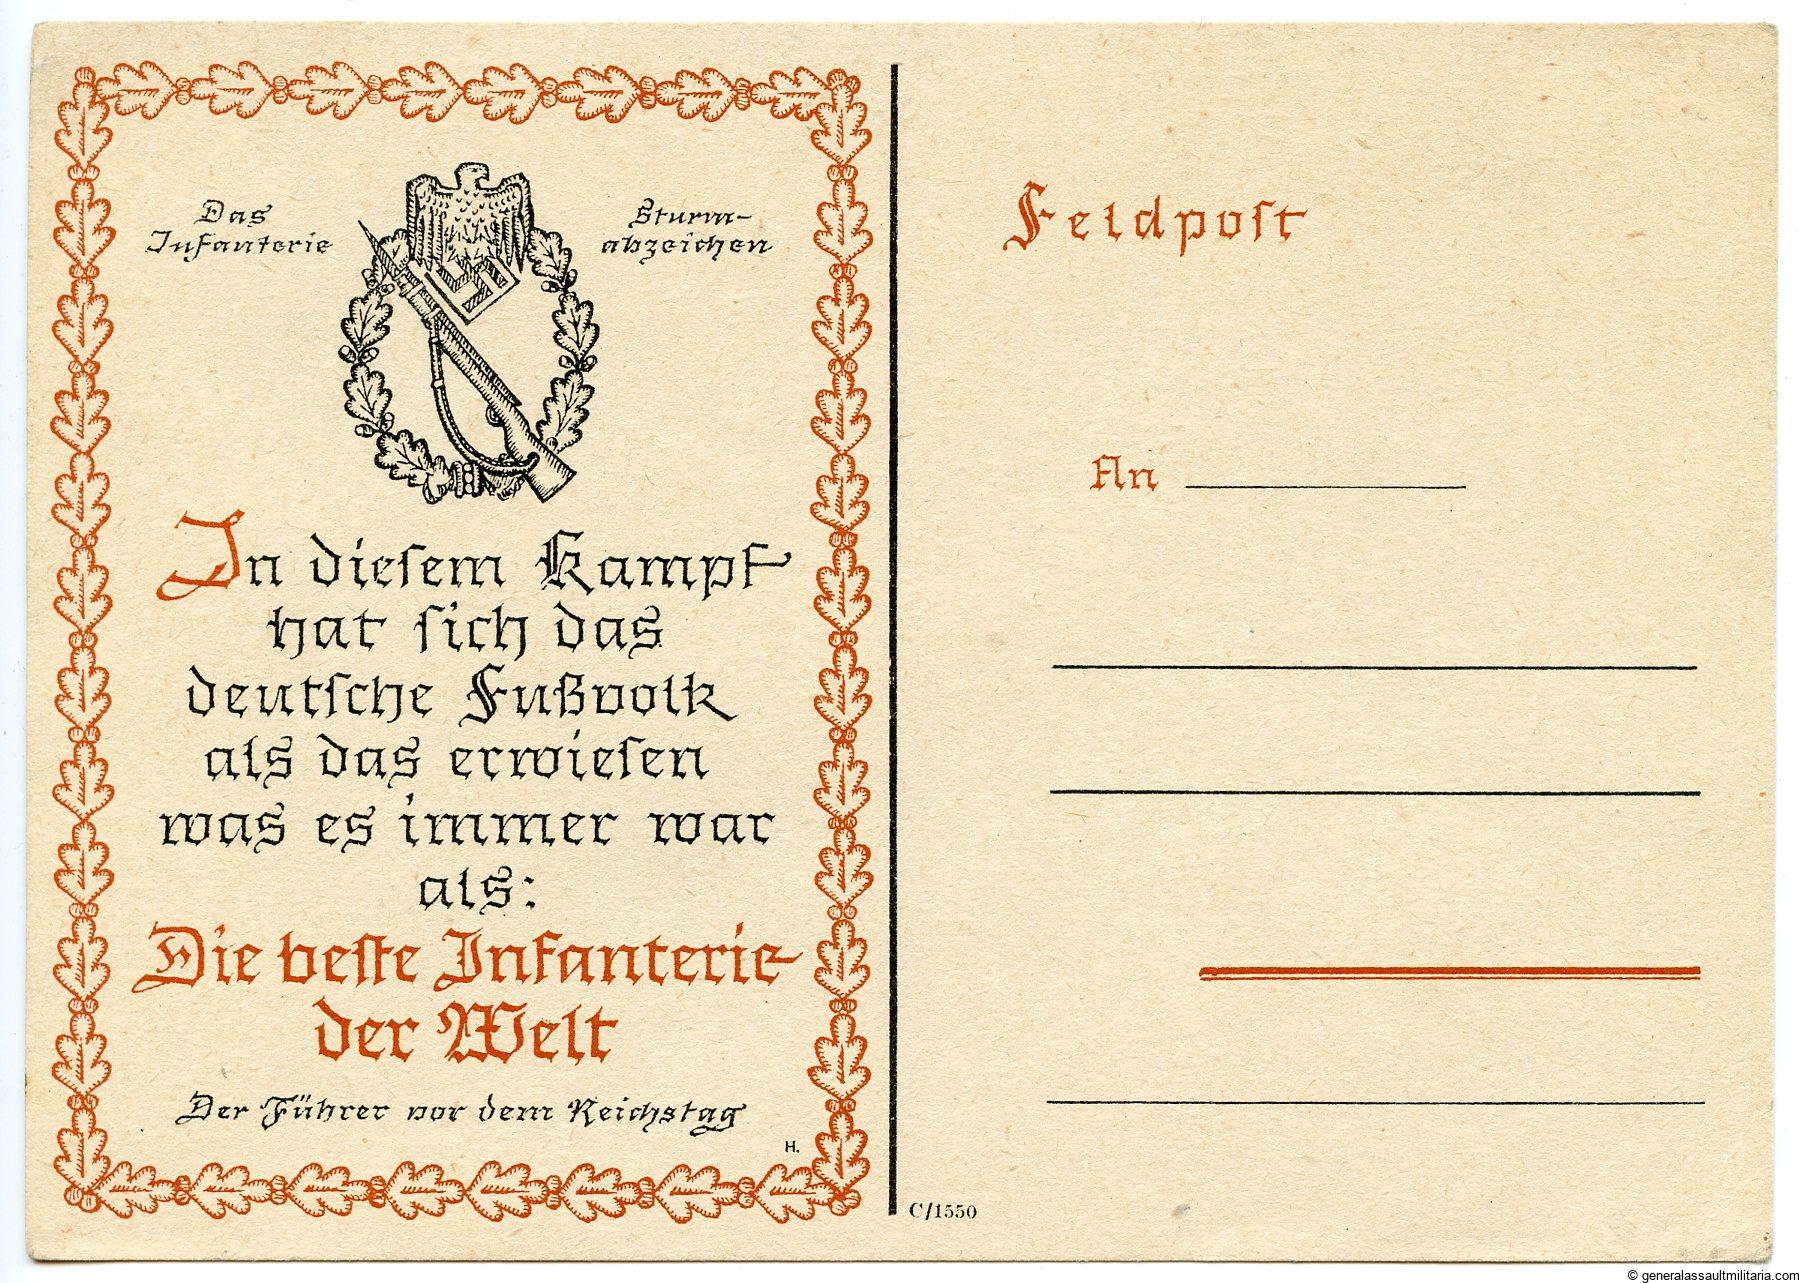 Das
Infanterie
Sturm-
abzeichen
In diesem Kampf
hat sich das
deutsche Fußvolk
als das erwiesen
was es immer war
als:
Die beste Infanterie
der Welt
Der Führer vor dem Reichstag
H.
Feldpost
An
C/1550
© generalassaultmilitaria.com